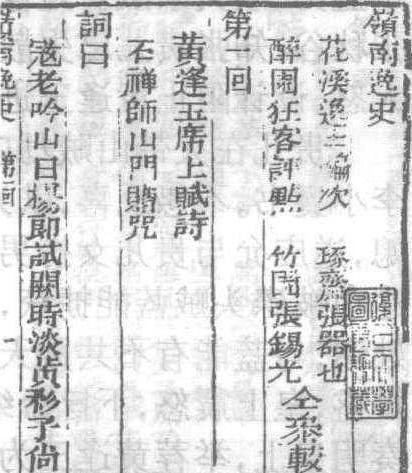 嶺南逸史
花溪逸士編次 琢齋張器也
醉園狂客評點 竹園張錫光 仝叅較
第一回
黃逢玉席上賦詩
石禪師山門贈咒
詞曰
寇老吟山日楊郎試闕時淡黃衫子尙
嶺南逸史 第一回 一
復旦大學
圖書館藏